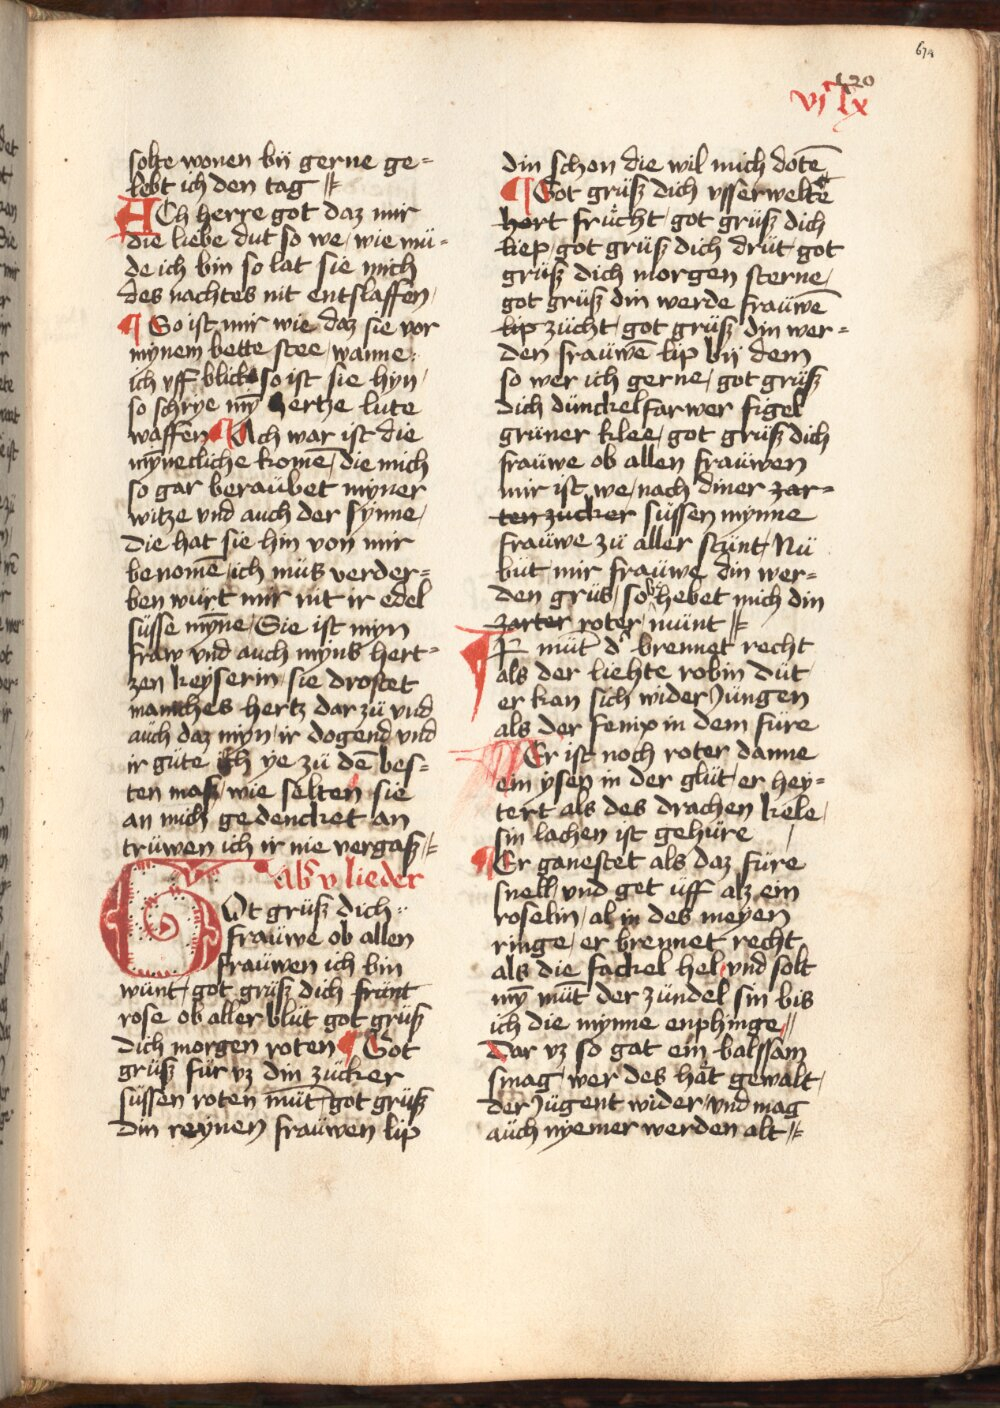 674
120
vj lx
solte wonen bij gerne ge=
lebt ich den tag
ACh herre got daz mir
die liebe dut so we / wie mü=
de ich bin so lat sie mich
des nachtes nit entslaffen /
So ist mir wie daz sie vor
mynem bette stee / wanne
ich vff blick so ist sie hyn /
so schrye mȳ hertze lute
waffen Ach war ist die
mȳnecliche komē / die mich
so gar beraübet myner
witze vnd auch der synne /
die hat sie hin von mir
benomē / ich müß verder=
ben würt mir nit ir edel
süsse mȳne / Sie ist myn
fraw vnd auch myns hert=
zen keyserin / sie drostet
manches hertz dar zü vnd
aüch daz myn / ir dogend vnd
ir güte ich ye zü dē bes=
ten maß / wie selten sie
an mich gedencket an
trüwen ich ir nie vergaß
Ab v lieder
GOt grüß dich
fraüwe ob allen
fraüwen ich bin
wünt / got grüß dich frünt
rose ob aller blüt got grüß
dich morgen roten Got
grüß für vz din zücker
süssen roten müt / got grüß
din reynen fraüwen lip
din schon die wil mich dotē
Got grüß dich vsserwelte
hort frücht / got grüß dich
liep / got grüß dich drüt / got
grüß dich morgen sterne /
got grüß din werde fraüwē
lip zücht / got grüß din wer=
den fraüwē lip bij dem
so wer ich gerne / got grüß
dich dünckelfarwer figel
grüner klee / got grüß dich
fraüwe ob allen fraüwen
mir ist we / nach diner zar=
ten zucker süssen mynne
fraüwe zü aller stünt / Nü
büt mir fraüwe din wer=
den grüß / so hebet mich din
zarter roter münt
IR müt dʼ brennet recht
als der liehte robin düt
er kan sich wider Jüngen
als der fenix in dem füre
Er ist noch roter danne
ein ysen in der glüt / er hey=
tert als des drachen kele /
sin lachen ist gehüre /
Er ganestet als daz füre
snell vnd get üff alz ein
roselin / al in des meyen
ringe / er brennet recht
als die fackel hel / vnd solt
mȳ müt der zündel sin bis
ich die mynne enphinge
Dar vz so gat ein balssam
smag / wer des hat gewalt /
der Jügent wider / vnd mag
aüch nyemer werden alt